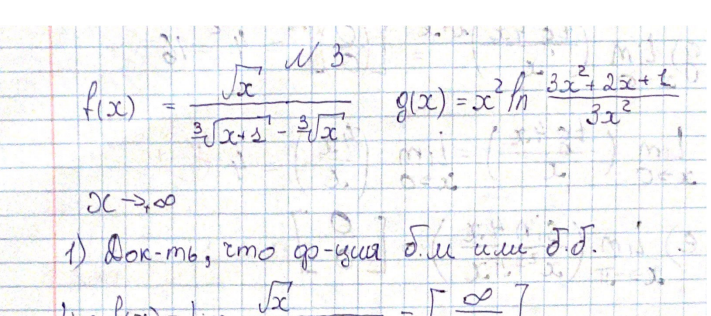 N 3
f(x) = √x / (∛(x+1) - ∛x) g(x) = x² ln (3x²+2x+1)/(3x²)
x→+∞
1) Док-ть, что ф-ция б.м или б.б.
√x = [∞